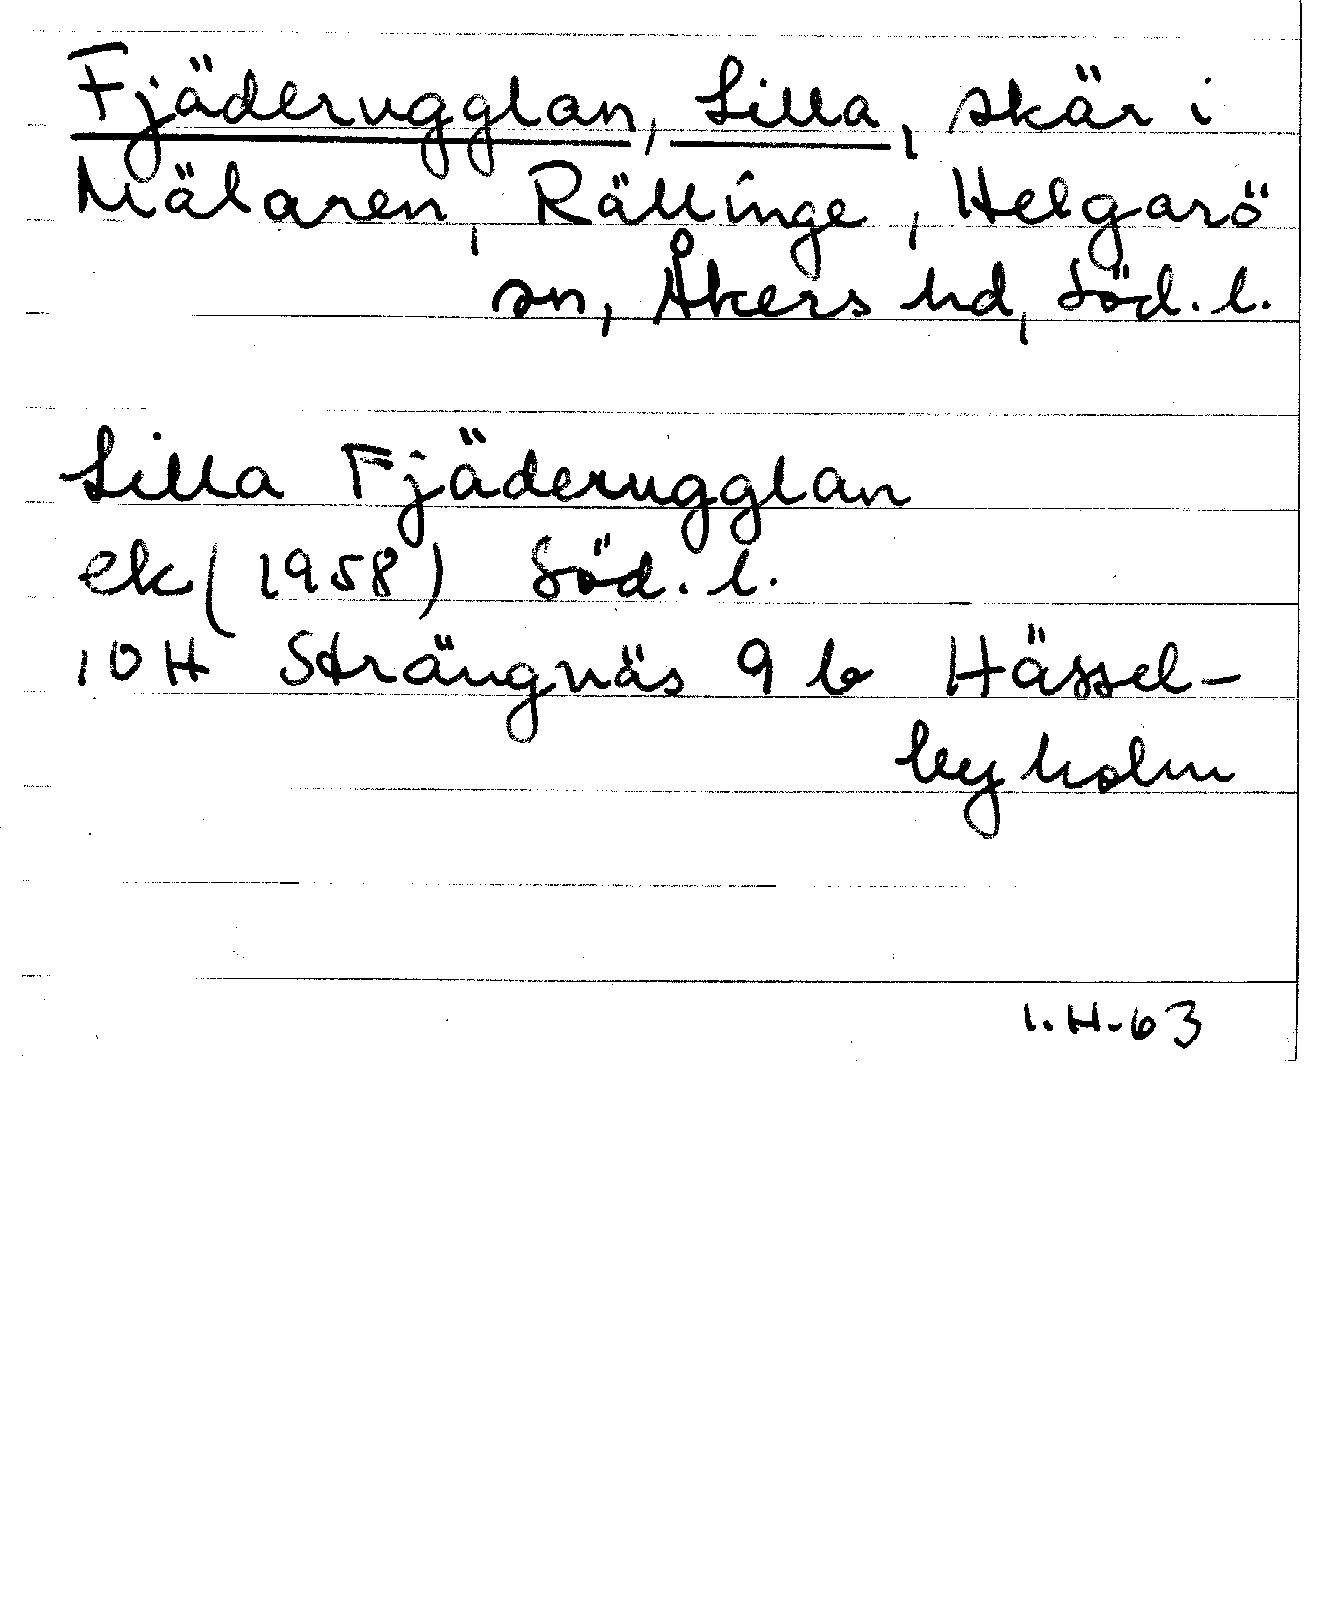 Fjäderugglan, Lilla, skär i
Mälaren, Rällinge, Helgarö
sn, Åkers hd, Söd. l.
Lilla Fjäderugglan
ek (1958) Söd. l.
10 H Strängnäs 9 b Hässel-
byholm
I.H-63